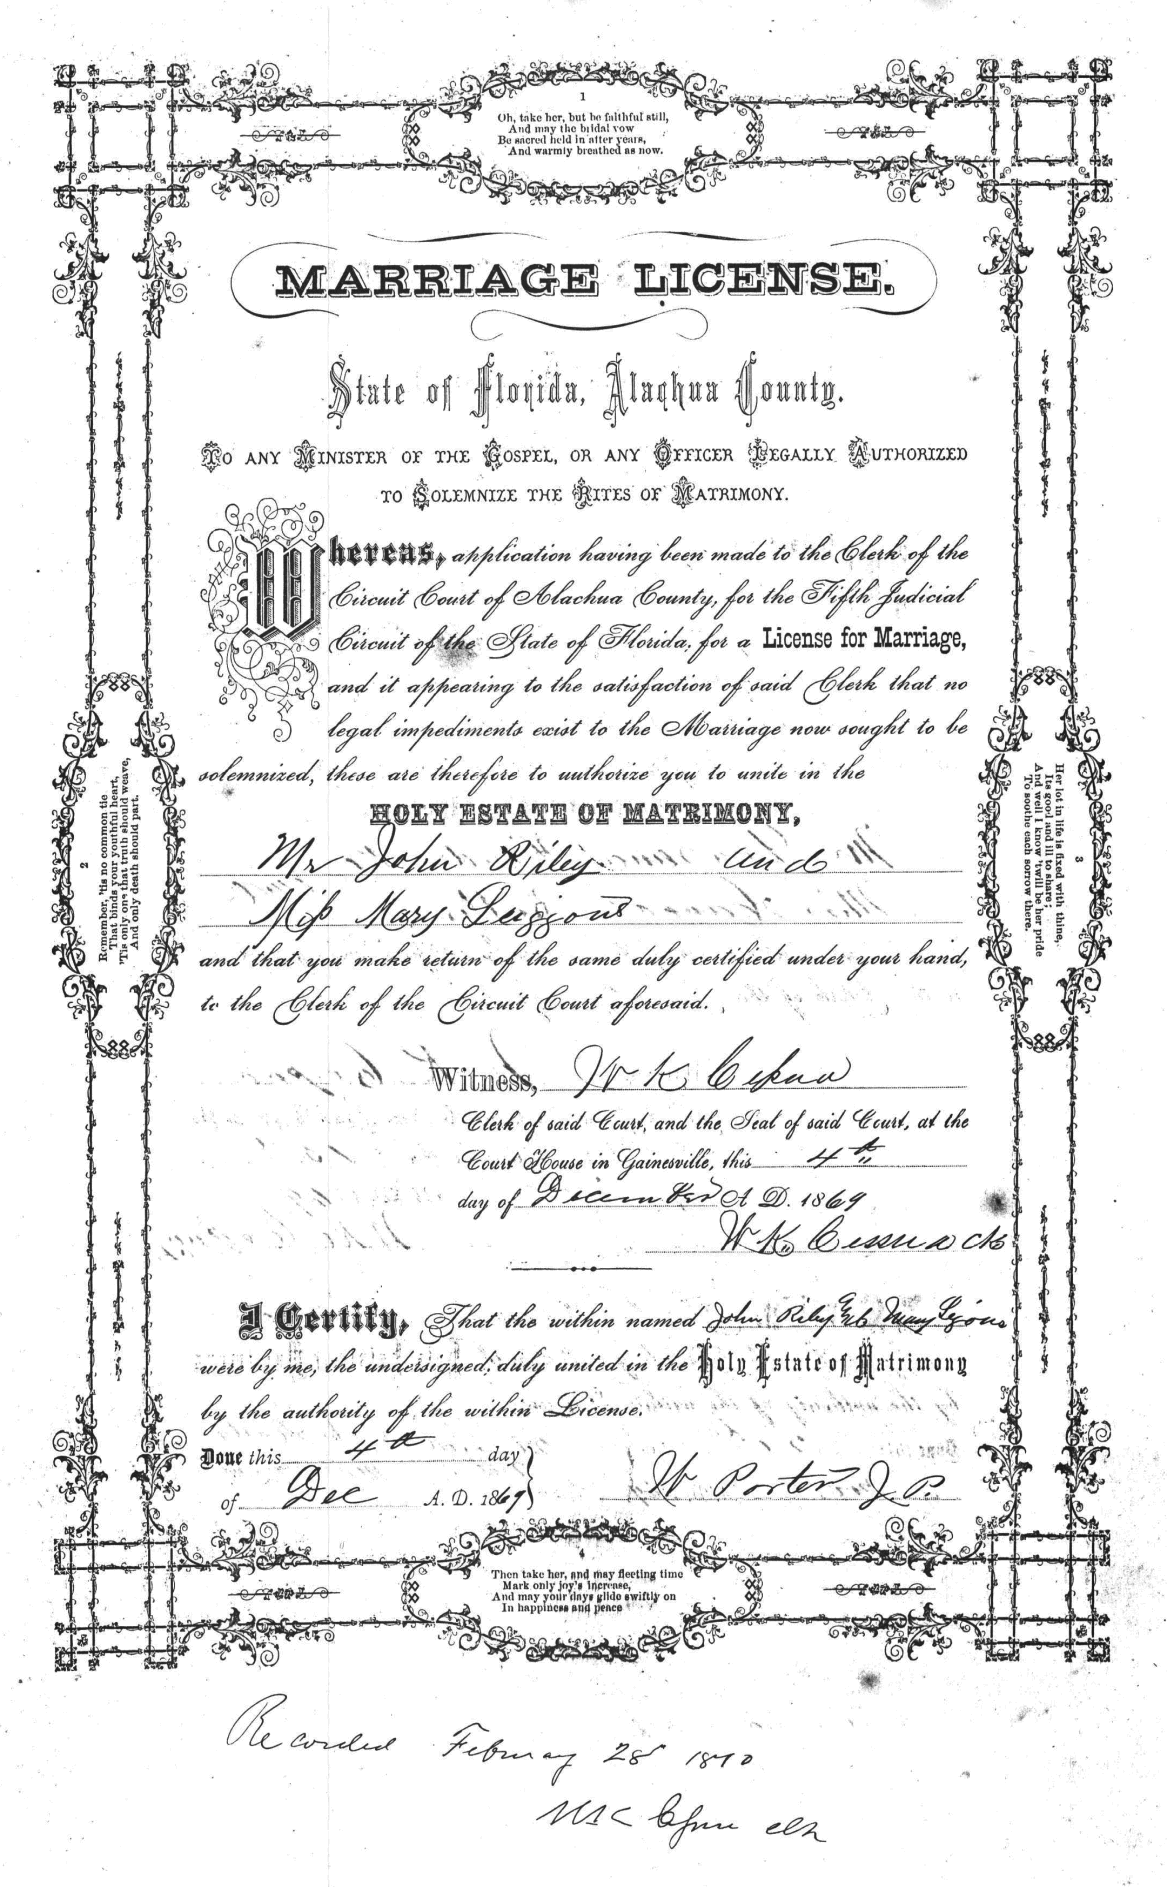 1
Oh, take her, but be faithful still,
And may the bridal vow
Be sacred held in after years,
And warmly breathed as now.
MARRIAGE LICENSE.
State of Florida, Alachua County.
TO ANY MINISTER OF THE GOSPEL, OR ANY OFFICER LEGALLY AUTHORIZED
TO SOLEMNIZE THE RITES OF MATRIMONY.
Whereas, application having been made to the Clerk of the
Circuit Court of Alachua County, for the Fifth Judicial
Circuit of the State of Florida, for a License for Marriage,
and it appearing to the satisfaction of said Clerk that no
legal impediments exist to the Marriage now sought to be
solemnized, these are therefore to authorize you to unite in the
HOLY ESTATE OF MATRIMONY,
Mr John Riley and
Miss Mary
and that you make return of the same duly certified under your hand,
to the Clerk of the Circuit Court aforesaid.
Witness, W K
Clerk of said Court, and the Seal of said Court, at the
Court House in Gainesville, this 4th
day of December A D. 1869
W. K.
I Certify, That the within named John Riley Mary
were by me, the undersigned, duly united in the Holy Estate of Matrimony
by the authority of the within License.
Done this 4th day
of Dec A. D. 1869
W Porter J. P.
2
Remember, 'tis no common tie
That binds your youthful heart,
'Tis only one that truth should weave,
And only death should part.
3
Her lot in life is fixed with thine,
Its good and ill to share;
And well I know 'twill be her pride
To soothe each sorrow there.
4
Then take her, and may fleeting time
Mark only joy's increase,
And may your days glide swiftly on
In happiness and peace
Recorded February 28 1870